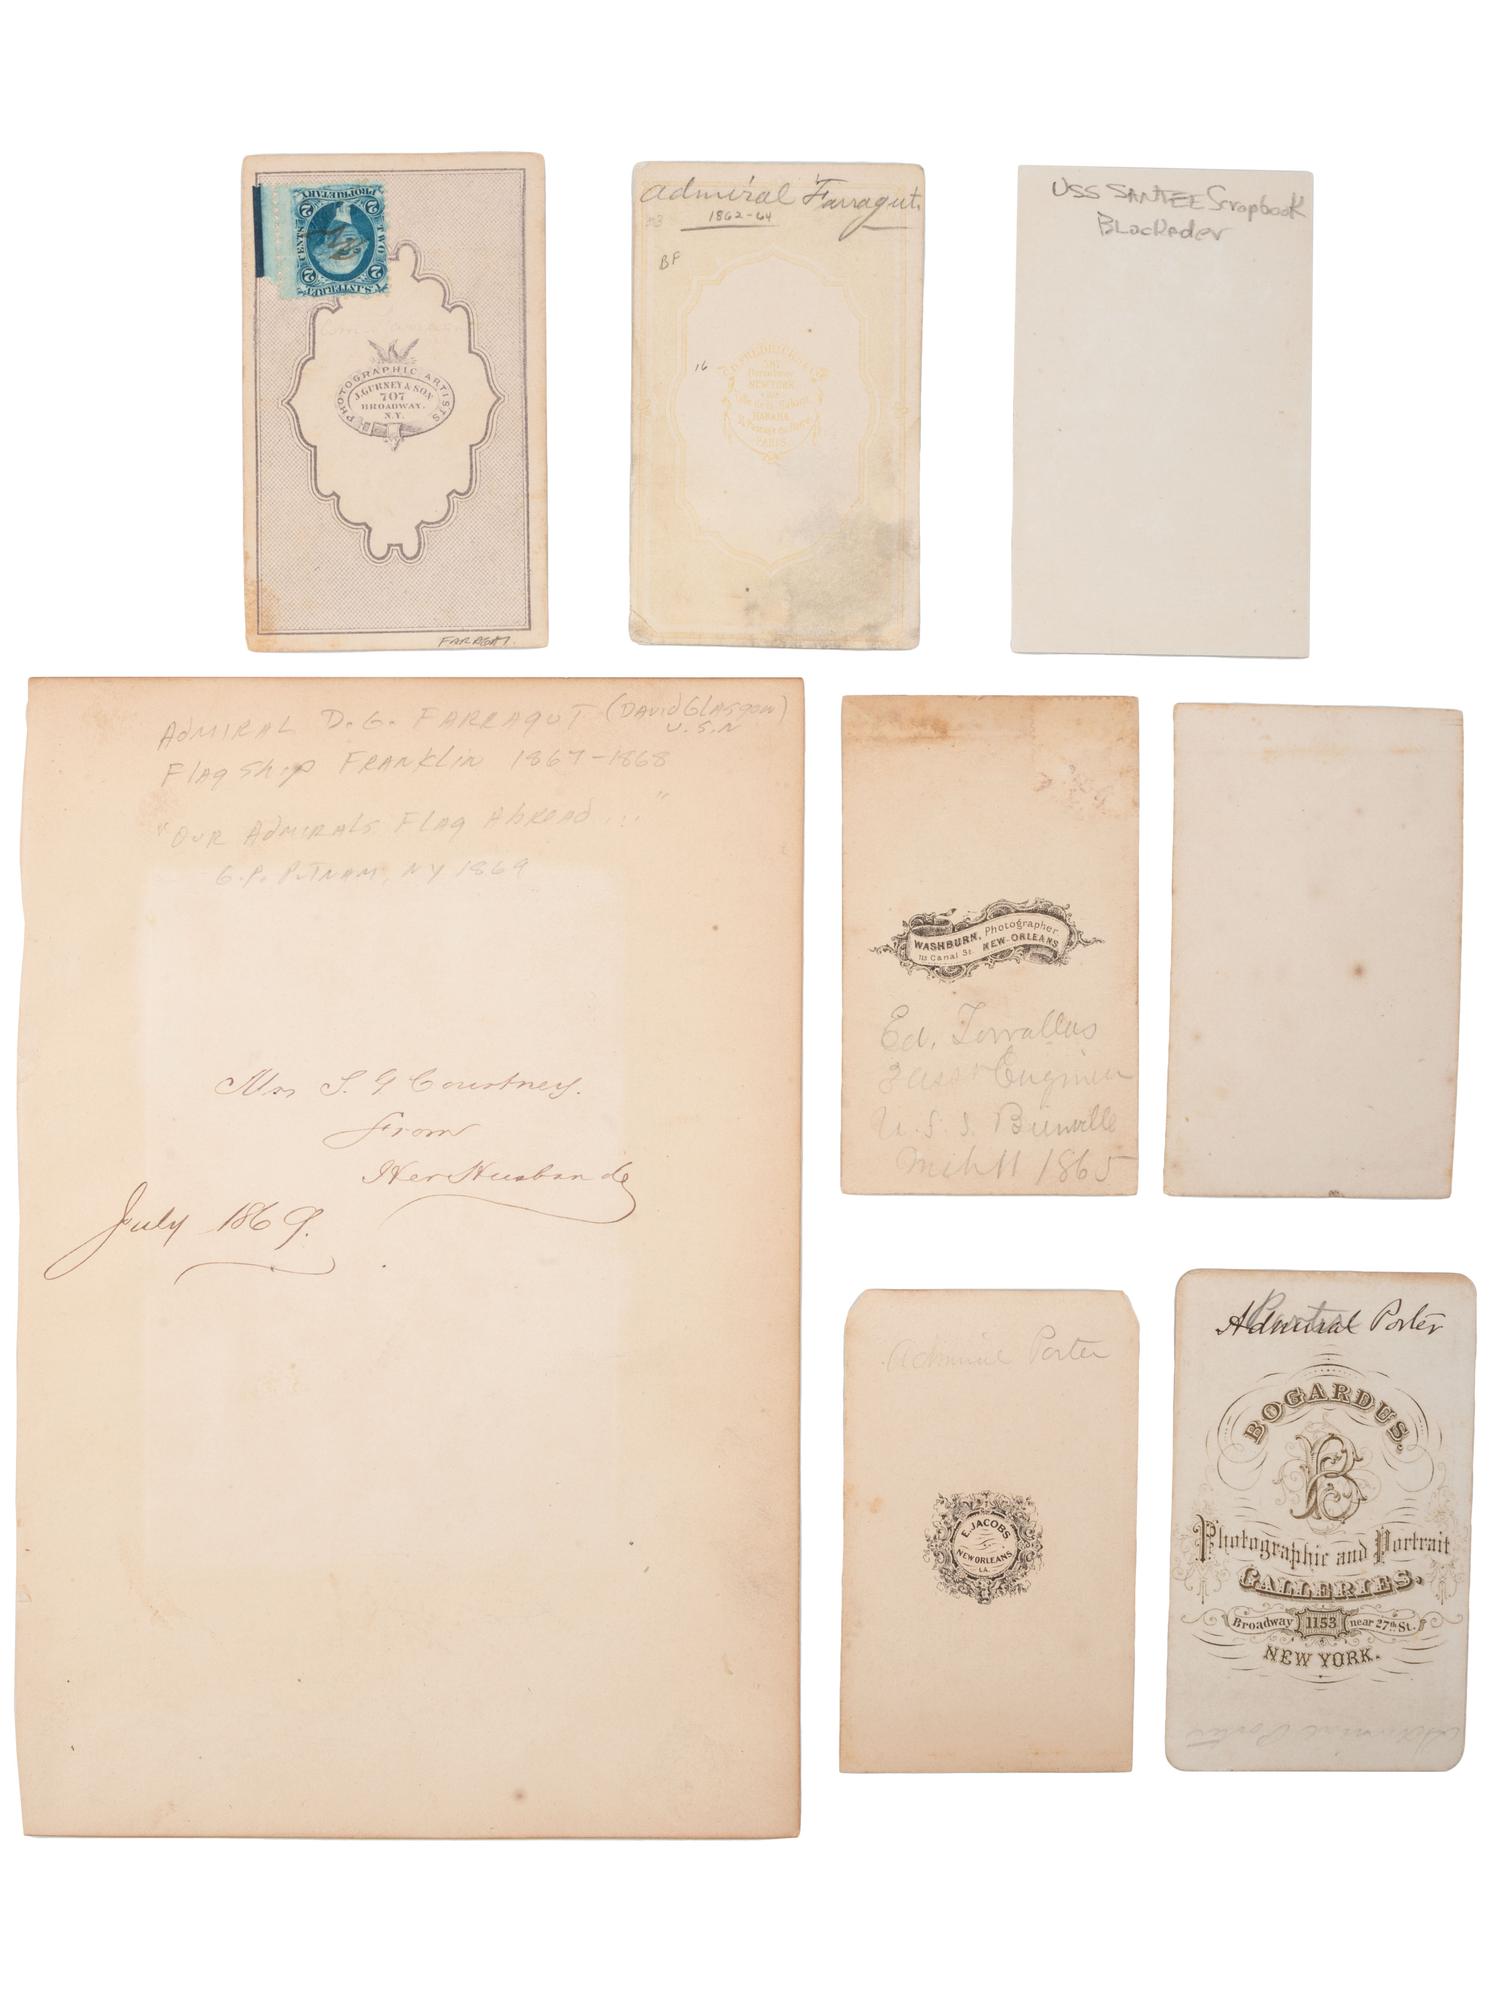 PROPRIETARY
2 TWO CENTS 2
U.S. INTER. REV.
PHOTOGRAPHIC ARTISTS
J. GURNEY & SON
707
BROADWAY,
N.Y.
FARRAGUT.
Admiral Farragut.
1862-64
BF
16
C.D. FREDRICKS & CO
587
Broadway
NEW YORK
HABANA
PARIS
USS SANTEE Scrapbook
Blockader
ADMIRAL D. G. FARRAGUT (DAVID GLASGOW)
U.S.N
FlagShip FRANKlin 1867-1868
"OUR ADMIRALS Flag Abroad..."
G. P. PUTNAM, NY 1869
Mrs S. G Courtney.
From
Her Husband
July 1869.
WASHBURN, Photographer
113 Canal St. NEW-ORLEANS
Ed.
3 asst Engineer
U. S. S. Bienville
1865
Admiral Porter
E. JACOBS
NEW ORLEANS
LA.
Porter
Admiral Porter
BOGARDUS,
B
Photographic and Portrait
GALLERIES.
Broadway 1153 near 27th St.
NEW YORK.
Admiral Porter